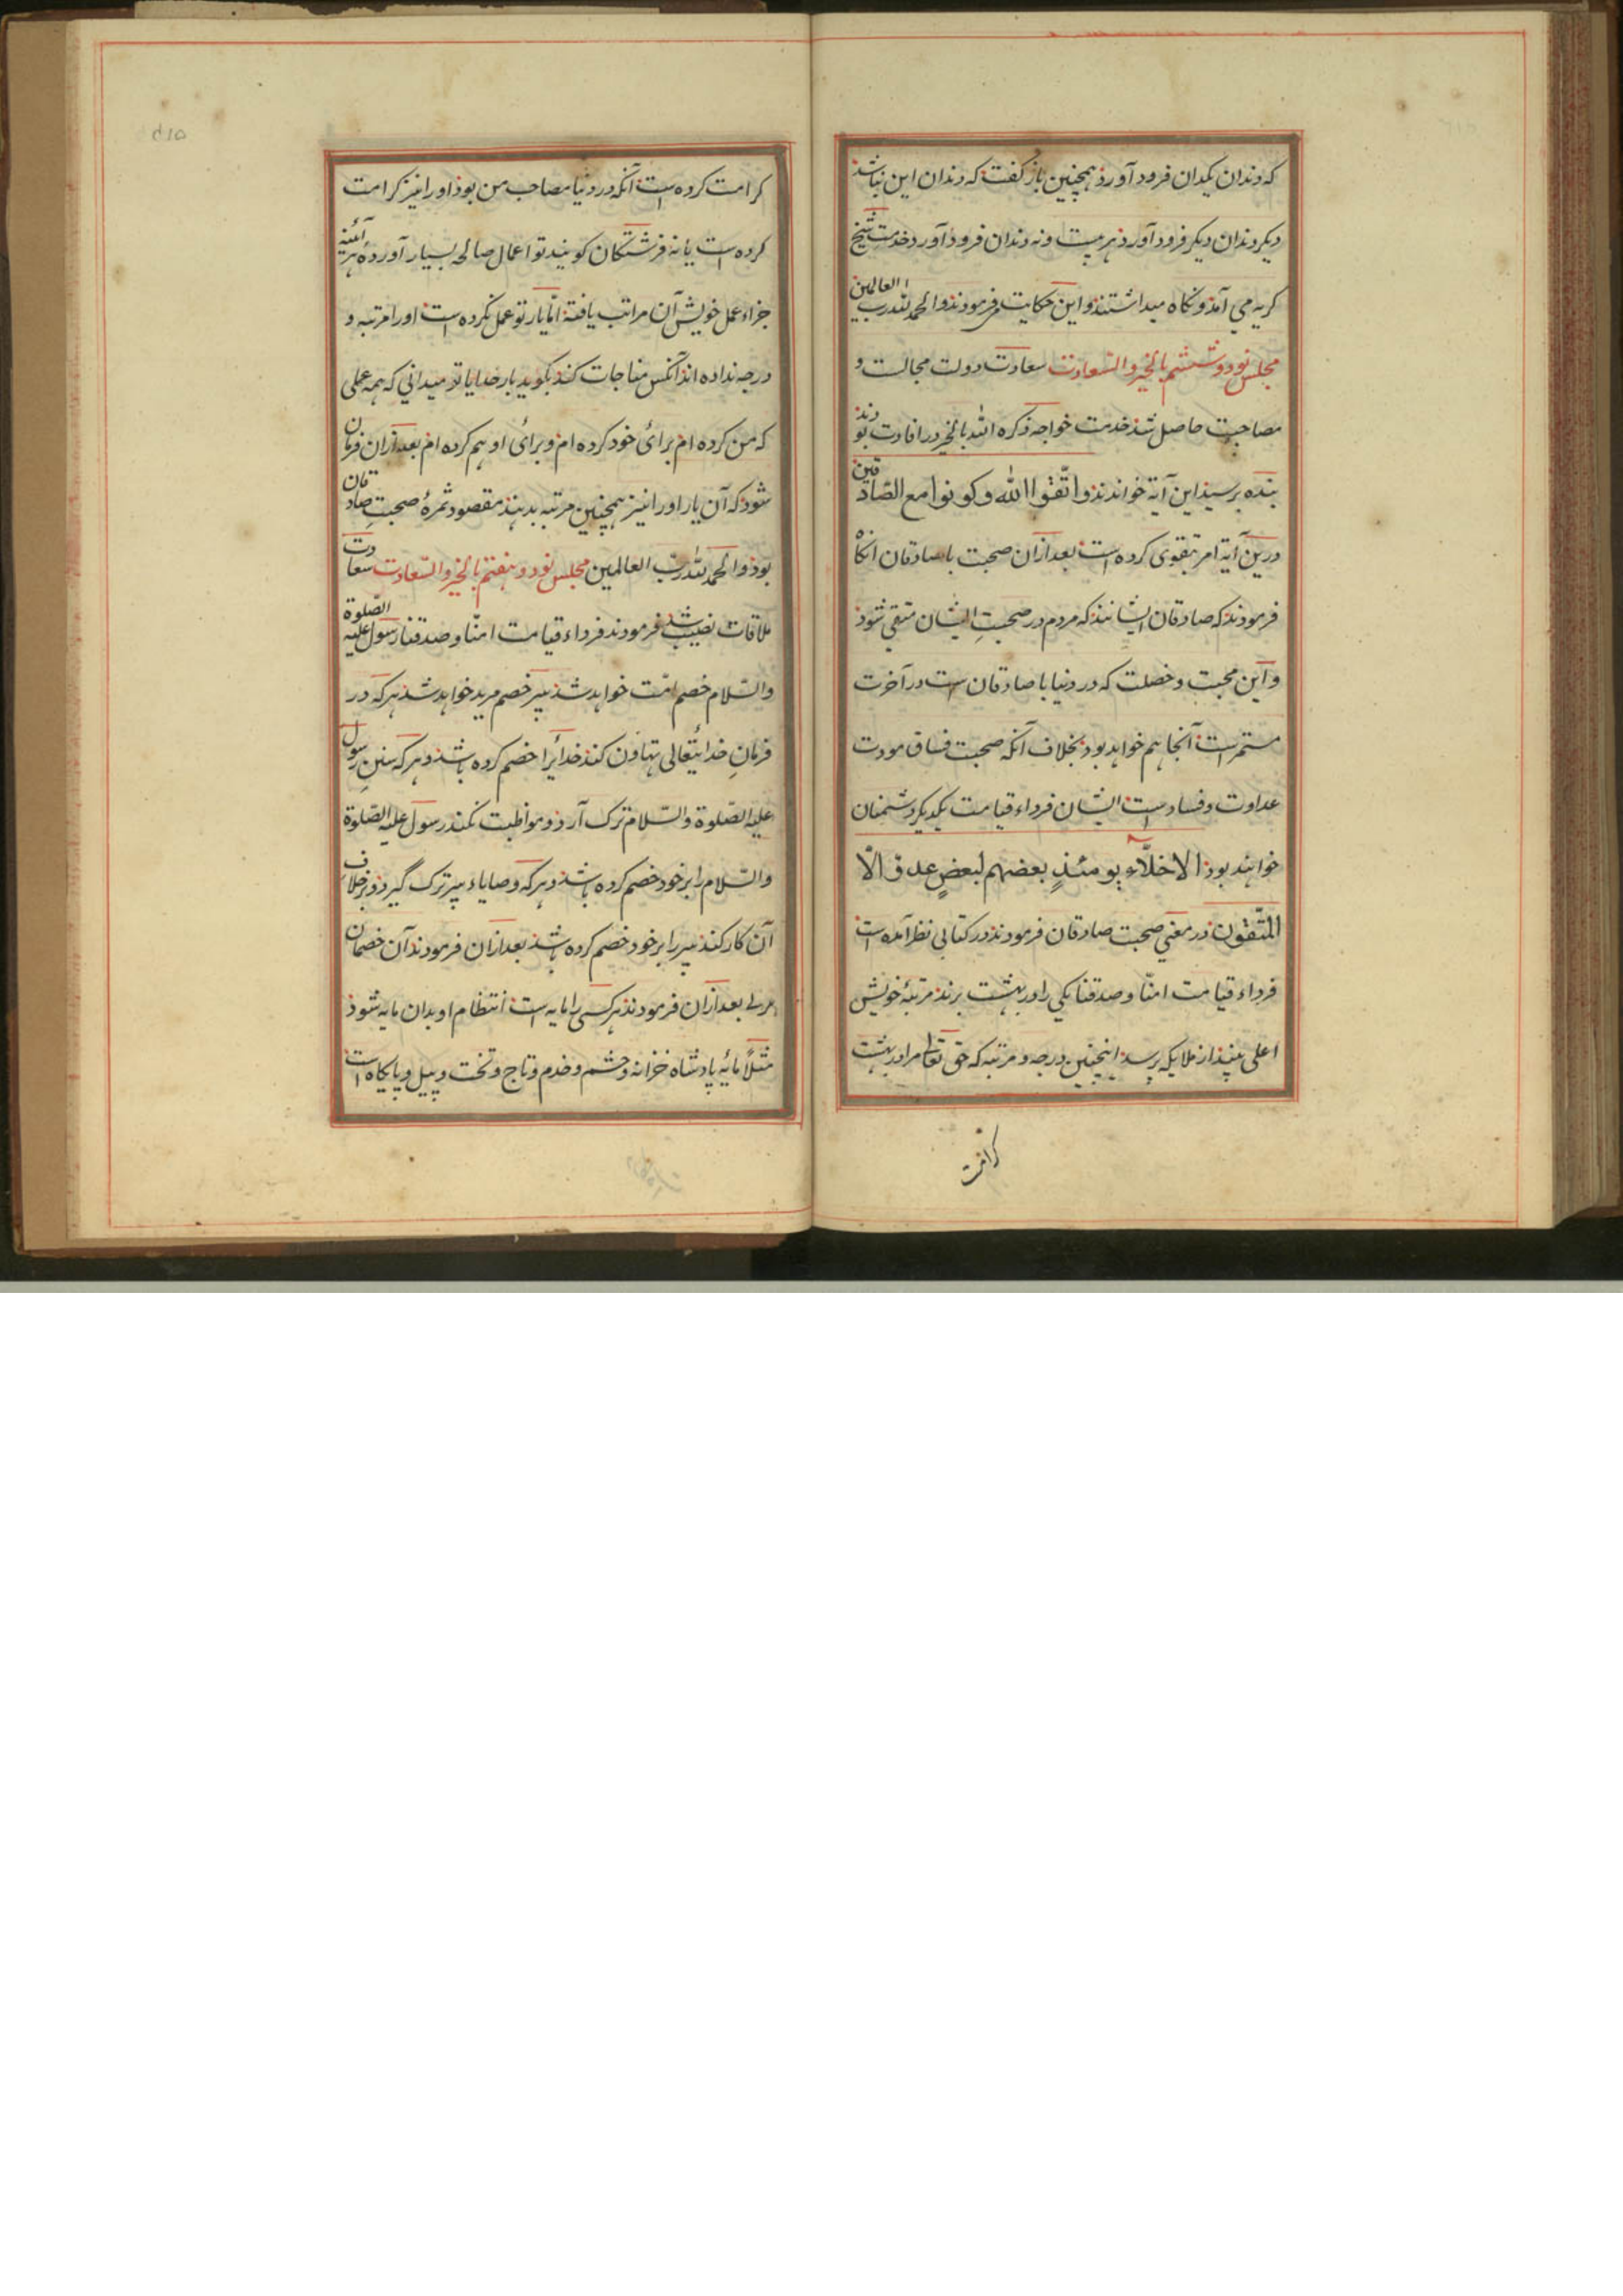 که دندان یکدان فرود آورد همچنین باز گفت که دندان این نباشد
دیگر دندان دیگر فرود آورد نه دندان فرود آورد خدمت شیخ
گریه می آمد و نگاه میداشتند و این حکایت می فرمودند و الحمد لله رب العالمین
مجلس نود و ششم بالخیر و السعادت سعادت دولت مجالست و
مصاحبت حاصل شد خدمت خواجه ذکره الله بالخیر در افادت بودند
بنده برسید این آیة خواندند و اتّقوا الله و کونوا مع الصّادقین
درین آیة امر بتقوی کرده است بعد ازان صحبت با صادقان انگاه
فرمودند که صادقان ایشانند که مردم در صحبتِ ایشان متقی شود
و این محبت و خصلت که در دنیا با صادقان است در آخرت
مستمر است آنجا هم خواهد بود بخلاف آنکه صحبت فساق مودت
عداوت و فساد است ایشان فرداء قیامت یکدیگر دشمنان
خواهند بود الاخلّاء یومئذٍ بعضهم لبعضٍ عدوّ الّا
المتّقون در معنی صحبت صادقان فرمودند در کتابی نظر آمده است
فرداء قیامت امنّا و صدقنا یکی را در بهشت برند مرتبهٔ خویش
اعلی بیند از ملایکه برسد اینچنین درجه و مرتبه که حق تعالی مرا در بهشت
کرامت
کرامت کرده است آنکه در دنیا مصاحب من بود او را نیز کرامت
کرده است یا نه فرشتگان گویند تو اعمال صالحه بسیار آوردهٔ هر آئینه
جزاء عمل خویش آن مراتب یافتهٔ امّا یار تو عمل نکرده است او را مرتبه و
درجه نداده اند آنکس مناجات کند بگوید بار خدایا تو میدانی که همه عملی
که من کرده ام برائ خود کرده ام و برائ او هم کرده ام بعد ازان فرمان
شود که آن یار او را نیز همچنین مرتبه بدهند مقصود ثمرهٔ صحبتِ صادقان
بود و الحمد لله ربّ العالمین مجلس نود و هفتم بالخیر و السّعادت سعادت
ملاقات نصیب شد فرمودند فرداء قیامت امنّا و صدقنا رسول علیه الصّلوة
والسّلام خصم امّت خواهد شد پیر خصم مرید خواهد شد هر که در
فرمانِ خدایتعالی تهاون کند خدایرا خصم کرده باشد و هر که سننِ رسول
علیه الصّلوة والسّلام ترک آرد و مواظبت نکند رسول علیه الصّلوة
والسّلام را بر خود خصم کرده باشد و هر که وصایاء پیر ترک گیرد و بر خلاف
آن کار کند پیر را بر خود خصم کرده باشد بعد ازان فرمودند آن خصمان
بعد ازان فرمودند هر کسی را مایه است انتظام او بدان مایه شود
مثلاً مایهٔ پادشاه خزانه و حشم و خدم و تاج و تخت و پیل و پایگاه است